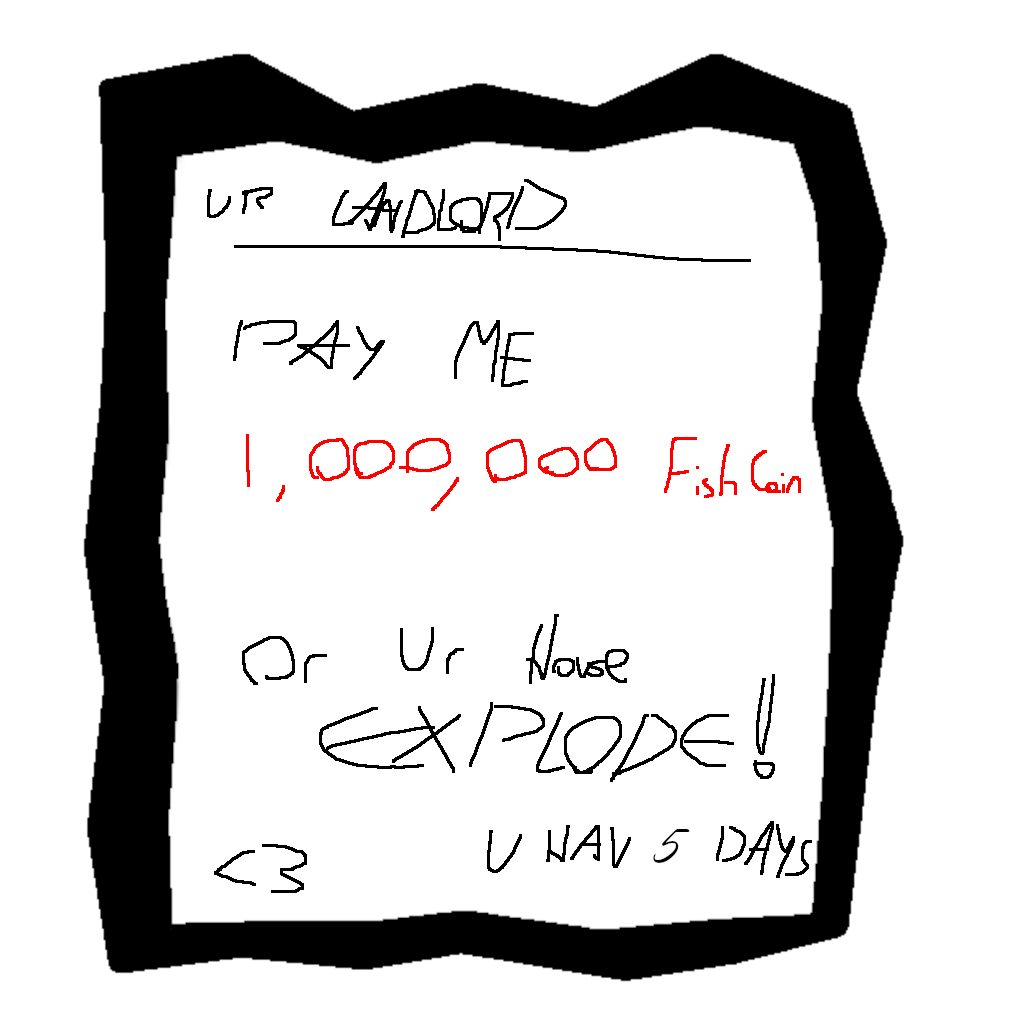 UR LANDLORD
PAY ME
1,000,000 Fish Coin
Or Ur House
EXPLODE!
U HAV 5 DAYS
<3